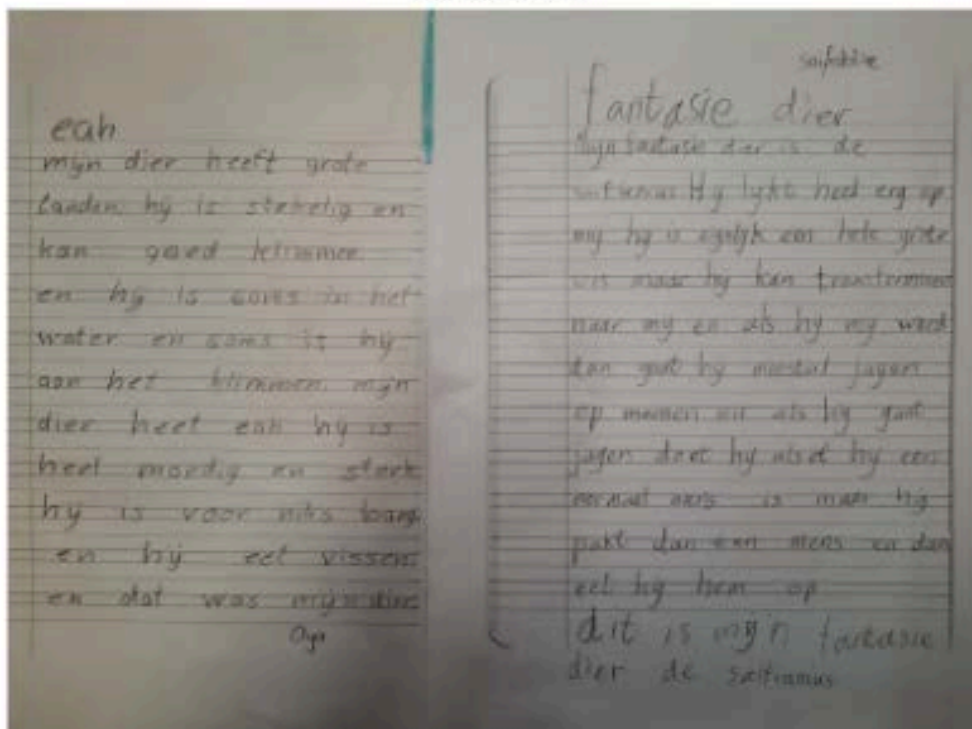 eah
mijn dier heeft grote
tanden hij is stekelig en
kan goed klimmen
en hij is soms in het
water en soms is hij
aan het klimmen mijn
dier heet eah hij is
heel moedig en sterk
hij is voor niks bang
en hij eet vissen
en dat was mijn dier
fantasie dier
Mijn fantasie dier is de
Hij lijkt heel erg op
mij hij is eigelijk een hele grote
vis maar hij kan transformeren
naar mij en als hij mij word
dan gaat hij meestal jagen
op mensen en als hij gaat
jagen doet hij alsof hij een
normaal mens is maar hij
pakt dan een mens en dan
eet hij hem op
dit is mijn fantasie
dier de